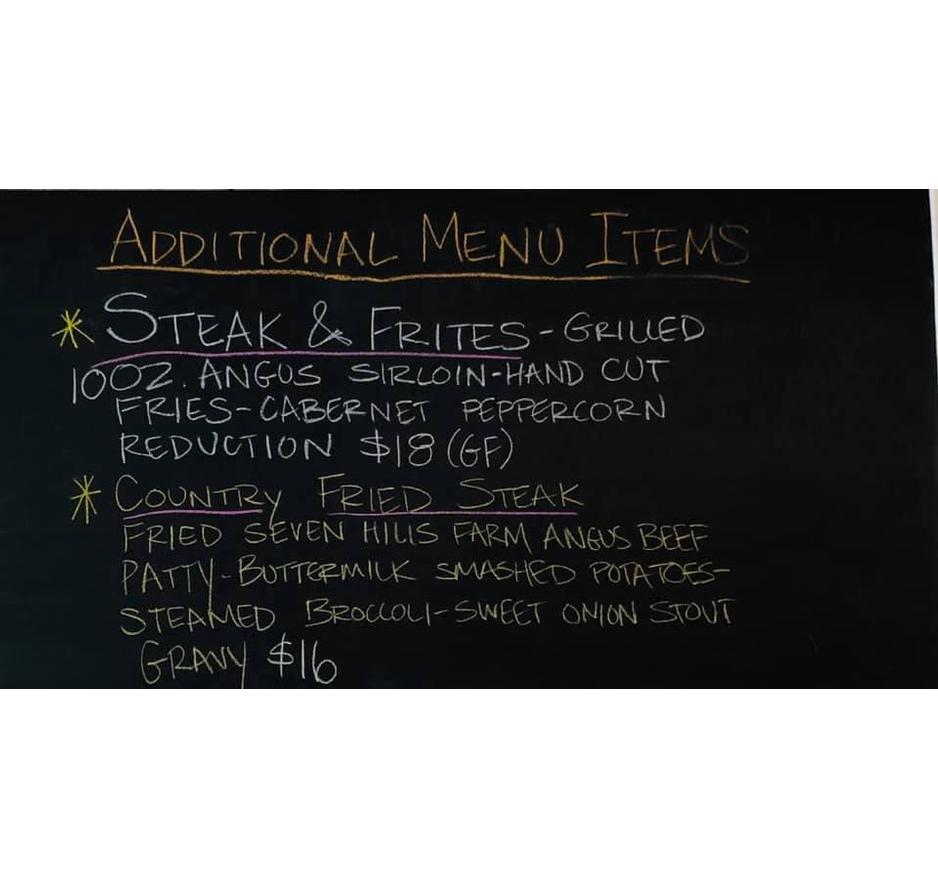 ADDITIONAL MENU ITEMS
* STEAK & FRITES - GRILLED
10OZ. ANGUS SIRLOIN-HAND CUT
FRIES-CABERNET PEPPERCORN
REDUCTION $18 (GF)
* COUNTRY FRIED STEAK
FRIED SEVEN HILLS FARM ANGUS BEEF
PATTY-BUTTERMILK SMASHED POTATOES-
STEAMED BROCCOLI-SWEET ONION STOUT
GRAVY $16